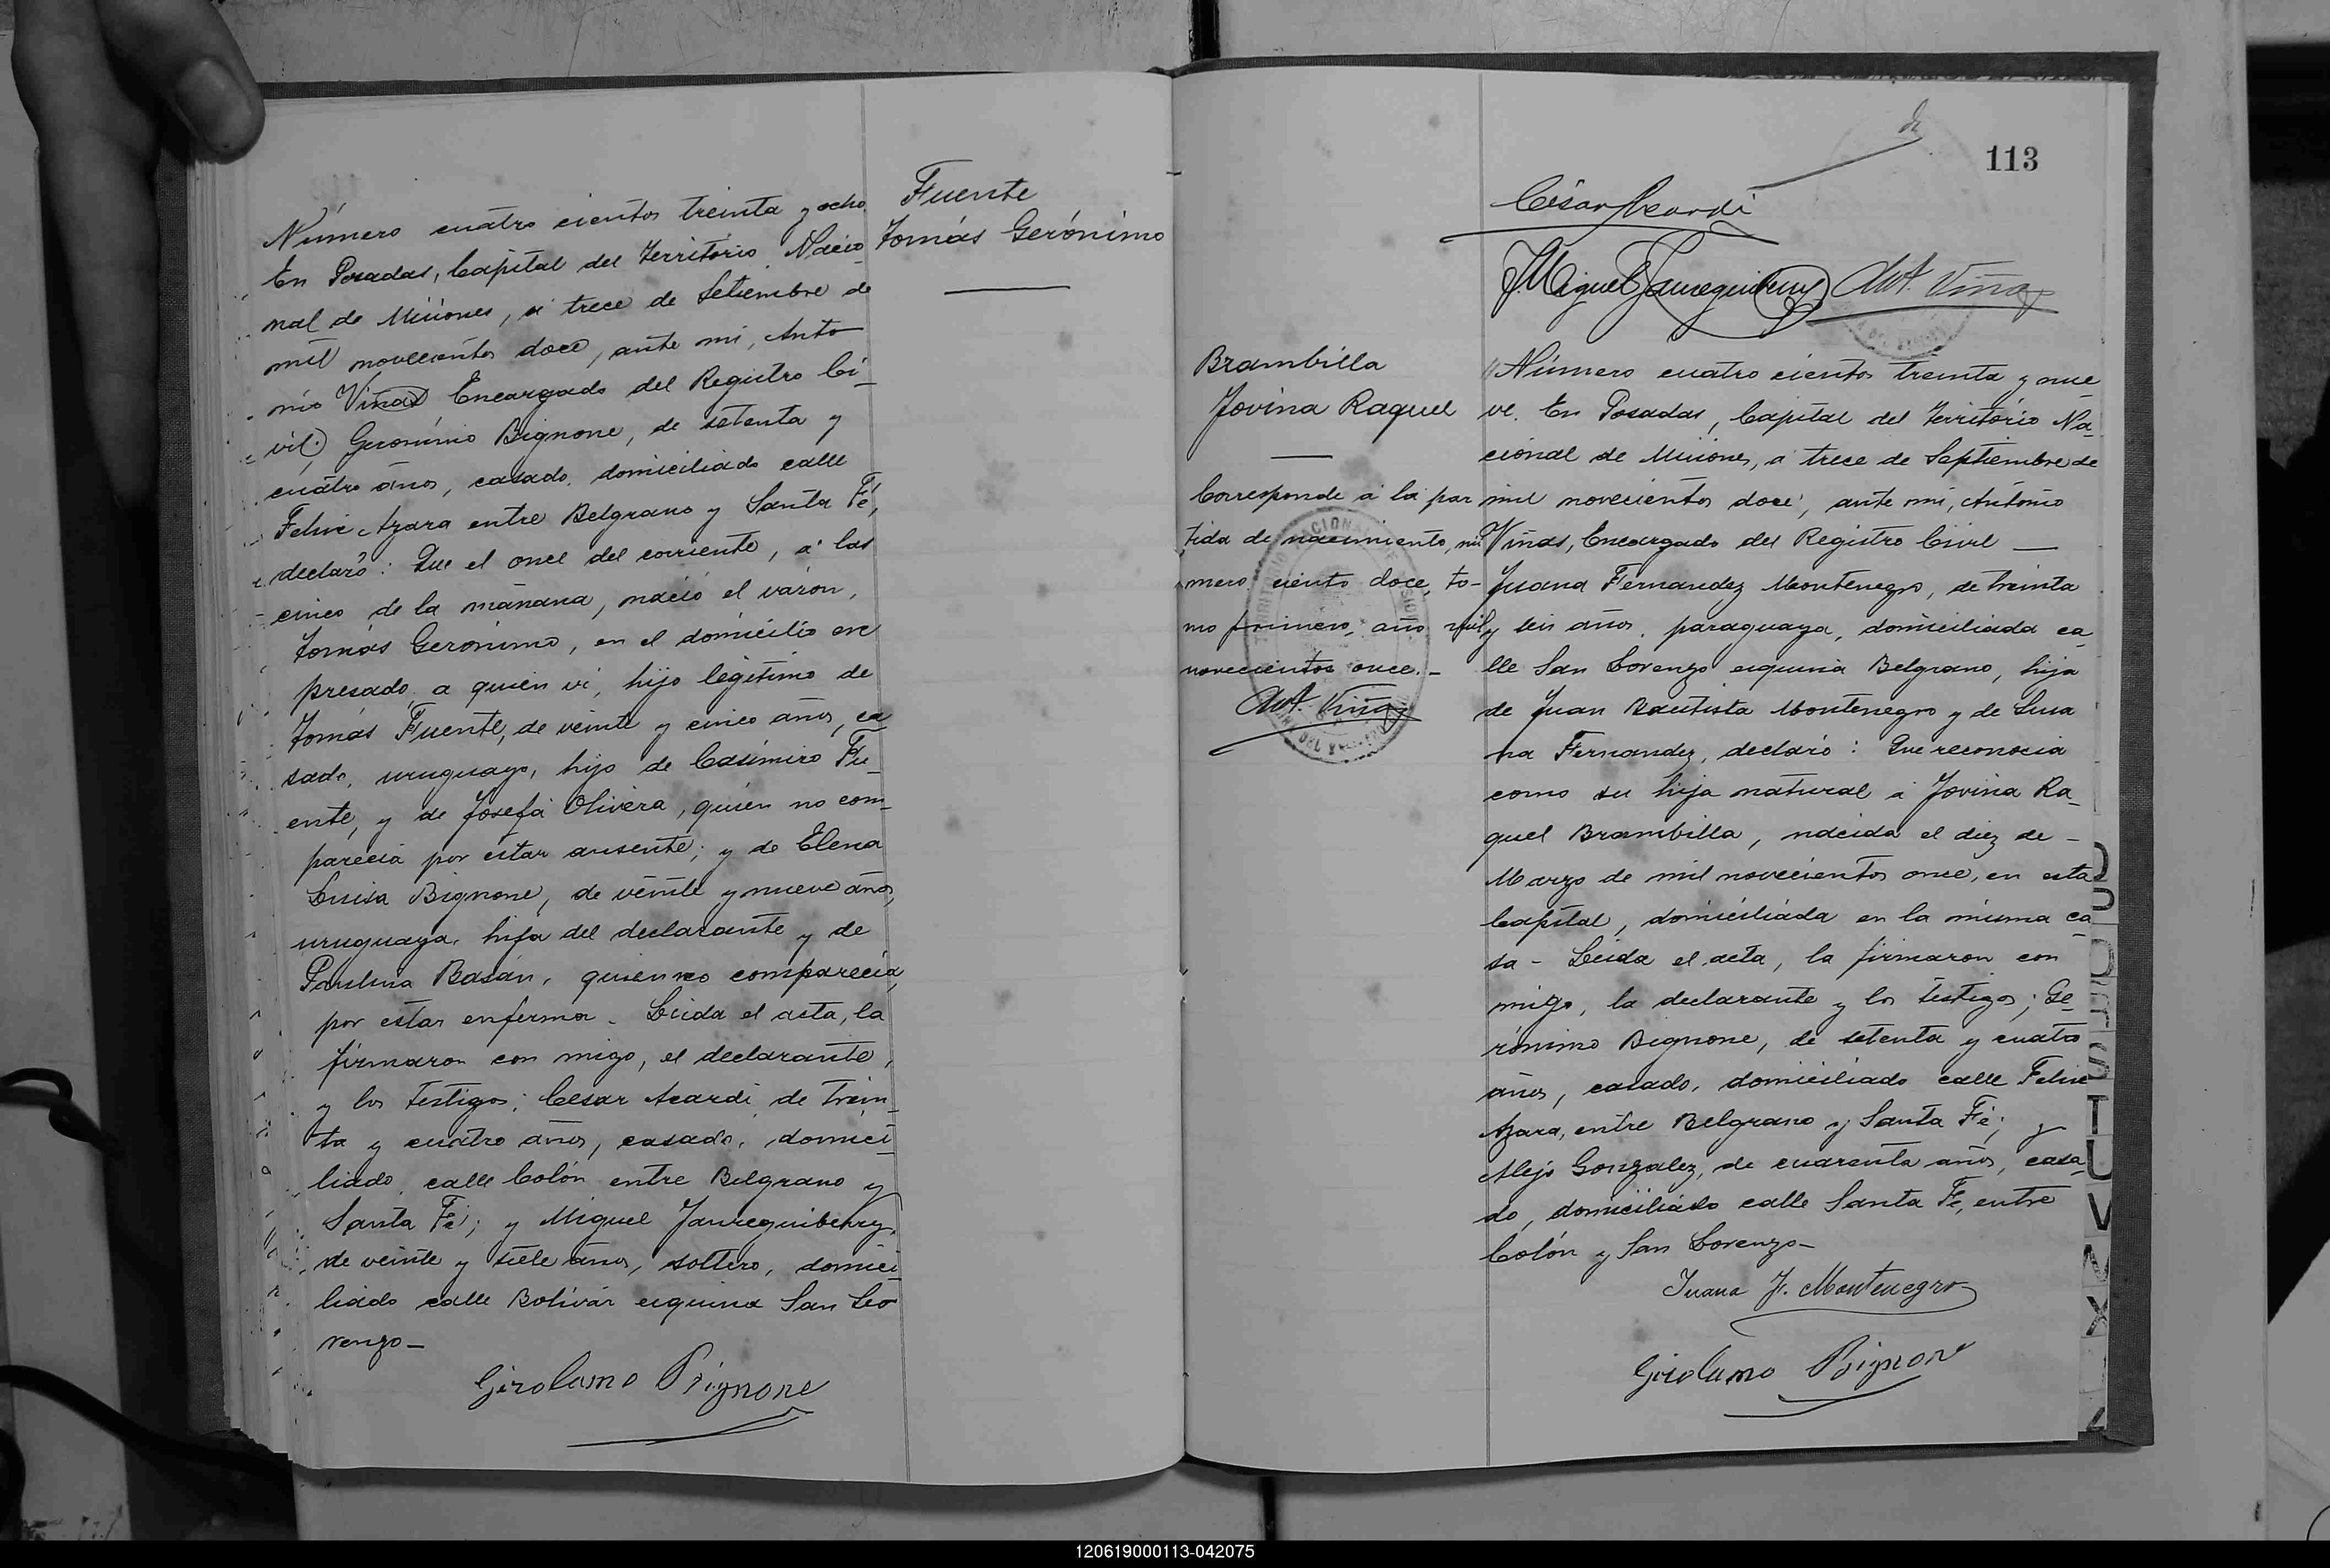 Número cuatro cientos treinta y ocho.
En Posadas, Capital del Territorio Nacio
nal de Misiones, a trece de Setiembre de
mil novecientos doce, ante mi, Anto
nio Viñas Encargado del Registro Ci_
vil, Gerónimo Bignone, de setenta y
cuatro años, casado, domiciliado calle
Felix Azara entre Belgrano y Santa Fé,
declaró: Que el once del corriente, á las
cinco de la mañana, nació el varon,
Tomás Gerónimo, en el domicilio ex
presado, a quien ví, hijo legítimo de
Tomás Fuente, de veinte y cinco años, ca
sado, uruguayo, hijo de Casimiro Fu_
ente, y de Josefa Olivera, quien no com_
parecia por estar ausente; y de Elena
Luisa Bignone, de veinte y nueve años,
uruguaya, hija del declarante y de
Paulina Basán, quien no comparecia,
por estar enferma. Leida el acta, la
firmaron con migo, el declarante,
y los testigos; César Acardi, de trein_
ta y cuatro años, casado, domici_
liado, calle Colón entre Belgrano y
Santa Fé; y Miguel Jaureguiberry,
de veinte y siete años, soltero, domici_
liado calle Bolívar esquina San Lo
renzo_
Girolamo Bignone
Fuente
Tomás Gerónimo
113
César Acardi
Miguel Jaureguiberry Ant. Viñas
Brambilla
Jovina Raquel
Corresponde á la par
tida de nacimiento, nú
mero ciento doce, to-
mo primero, año mil
novecientos once._
Ant. Viñas
Número cuatro cientos treinta y nue
ve. En Posadas, Capital del Territorio Na_
cional de Misiones, a trece de Septiembre de
mil novecientos doce, ante mi, Antonio
Viñas, Encargado del Registro Civil —
Juana Fernandez Montenegro, de treinta
y seis años, paraguaya, domiciliada ca_
lle San Lorenzo esquina Belgrano, hija
de Juan Bautista Montenegro y de Lucia
na Fernandez, declaró: Que reconocia
como su hija natural a Jovina Ra_
quel Brambilla, nacida el diez de -
Marzo de mil novecientos once, en esta
Capital, domiciliada en la misma ca_
sa - Leida el acta, la firmaron con
migo, la declarante y los testigos; Ge_
rónimo Bignone, de setenta y cuatro
años, casado, domiciliado calle Felix
Azara, entre Belgrano y Santa Fé; y
Alejo Gonzalez, de cuarenta años, casa_
do, domiciliado calle Santa Fé, entre
Colón y San Lorenzo_
Juana F. Montenegro
Girolamo Bignone
T
U
V
X
120619000113-042075